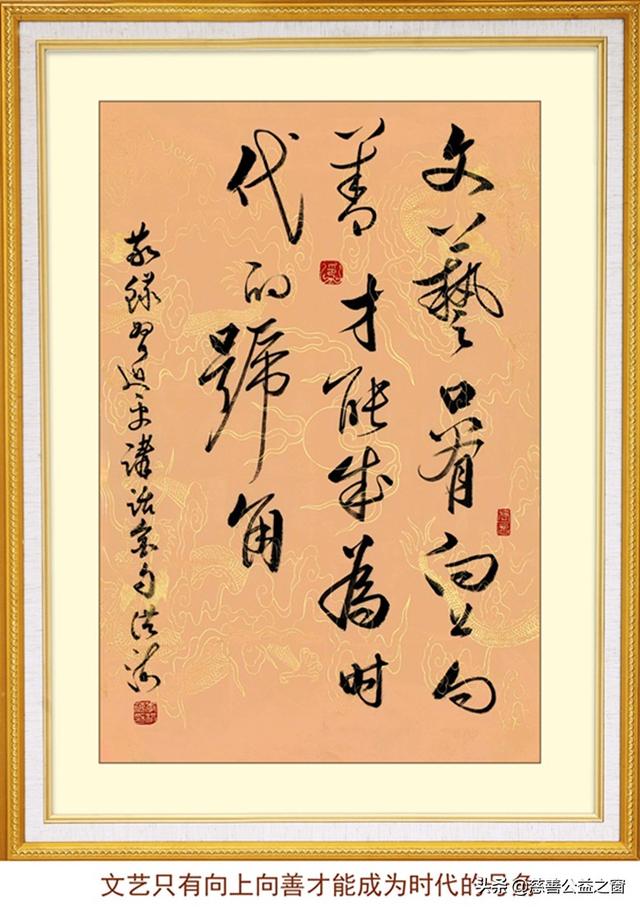 文藝只有向上向
善才能成為时
代的號角
敬錄習近平講話金句洪
文艺只有向上向善才能成为时代的号角
头条@慈善公益之窗